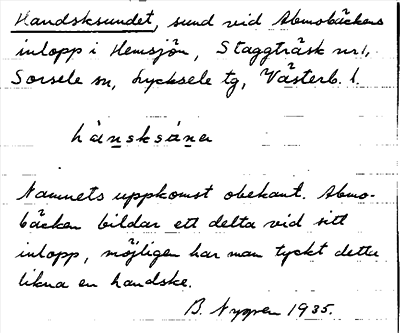 Handsksundet, sund vid Abmobäckens
inlopp i Hemsjön, Staggträsk nr 1,
Sorsele sn, Lycksele tg, Västerb. l.
hánsksána
Namnets uppkomst obekant. Abmo-
bäcken bildar ett delta vid sitt
inlopp, möjligen har man tyckt detta
likna en handske.
B. Nygren 1935.